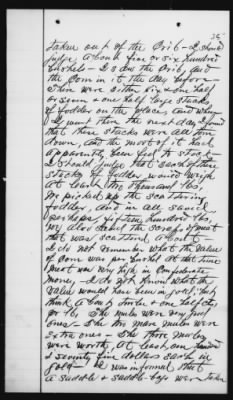 35
taken out of the Crib - I should
judge about five or six hundred
bushels - I seen the Crib and
the Corn in it the day before -
There were either six & one half
or seven & one half large stacks
of fodder on the place, and when
I went there the next day I found
that these stacks were all torn
down, and the most of it had
apparently been fed to stock
I should judge that each of these
stacks of fodder would weigh
at least two thousand lbs,
We picked up the scattering
fodder, and in all saved
perhaps fifteen hundred lbs,
we also raked the scraps of meat
that was scattered about -
I do not remember what the value
of corn was per bushel at that time
Meat was very high in Confederate
money - I do not know what the
value would have been in
think about twelve & one half cts
per lb. The mules were very good
ones - The two mare mules were
extra ones - The three mules
were worth, at least, one hundred
& seventy five dollars each in
gold - I was informed that
a saddle & saddle bags were taken